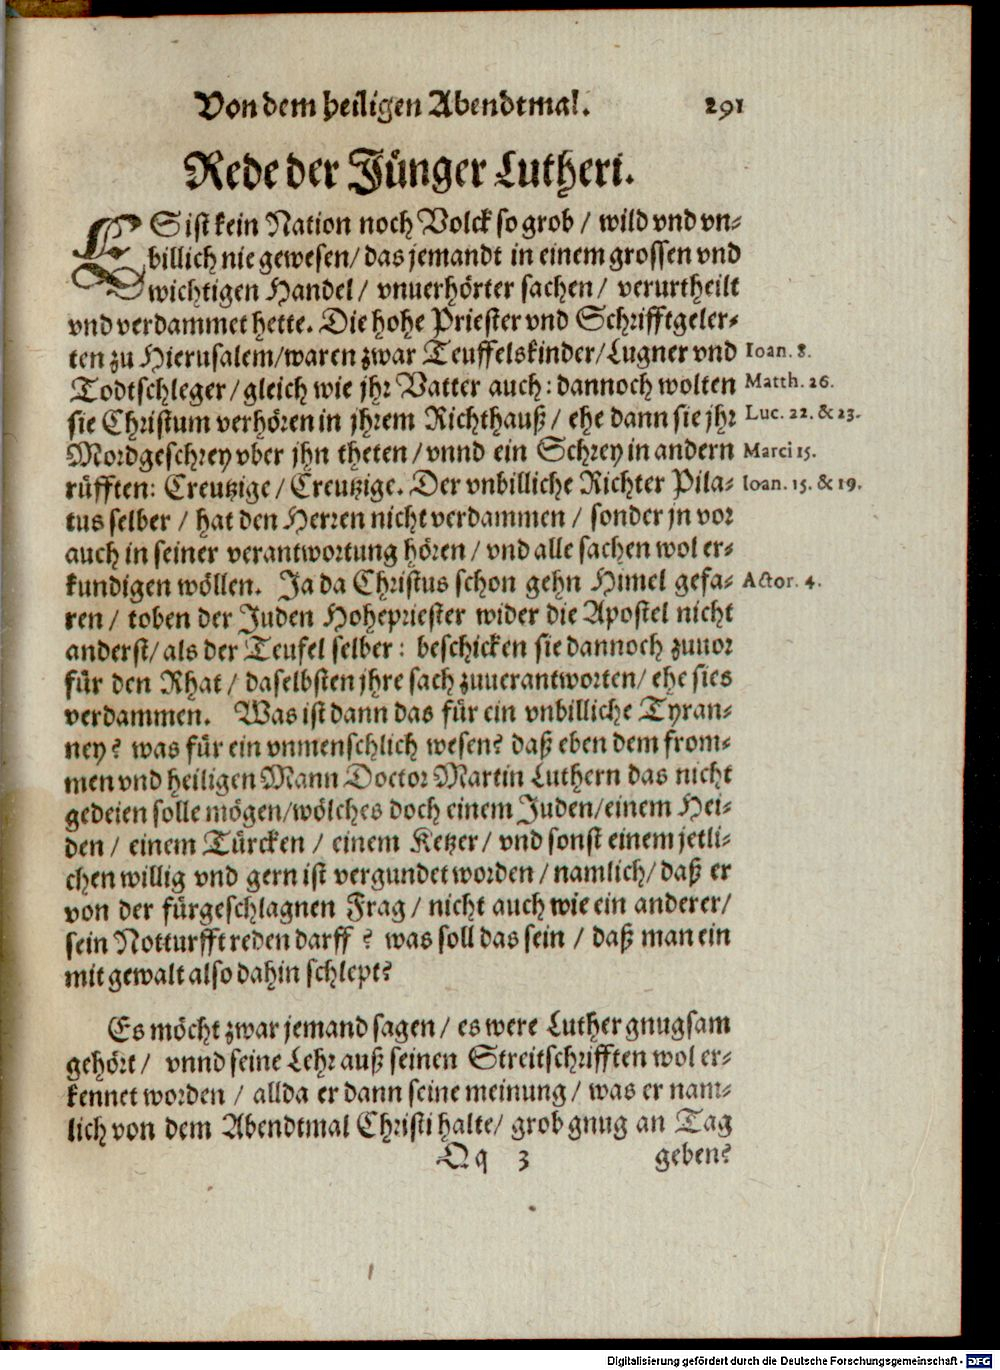 Von dem heiligen Abendtmal. 291
Rede der Jünger Lutheri.
ES ist kein Nation noch Volck so grob / wild vnd vn-
billich nie gewesen / das jemandt in einem grossen vnd
wichtigen Handel / vnuerhörter sachen / verurtheilt
vnd verdammet hette. Die hohe Priester vnd Schrifftgeler-
ten zu Hierusalem/waren zwar Teuffelskinder/Lugner vnd Ioan. 8.
Todtschleger / gleich wie jhr Vatter auch: dannoch wolten Matth. 26.
sie Christum verhören in jhrem Richthauß / ehe dann sie jhr Luc. 22. & 23.
Mordgeschrey vber jhn theten / vnnd ein Schrey in andern Marci 15.
rüfften: Creutzige / Creutzige. Der vnbilliche Richter Pila- Ioan. 15. & 19.
tus selber / hat den Herren nicht verdammen / sonder jn vor
auch in seiner verantwortung hören / vnd alle sachen wol er-
kundigen wöllen. Ja da Christus schon gehn Himel gefa- Actor. 4.
ren / toben der Juden Hohepriester wider die Apostel nicht
anderst/ als der Teufel selber: beschicken sie dannoch zuuor
für den Rhat / daselbsten jhre sach zuuerantworten/ ehe sies
verdammen. Was ist dann das für ein vnbilliche Tyran-
ney? was für ein vnmenschlich wesen? daß eben dem from-
men vnd heiligen Mann Doctor Martin Luthern das nicht
gedeien solle mögen/wölches doch einem Juden/einem Hei-
den / einem Türcken / einem Ketzer / vnd sonst einem jetli-
chen willig vnd gern ist vergundet worden / namlich/ daß er
von der fürgeschlagnen Frag / nicht auch wie ein anderer/
sein Notturfft reden darff ? was soll das sein / daß man ein
mit gewalt also dahin schlept?
Es möcht zwar jemand sagen / es were Luther gnugsam
gehört / vnnd seine Lehr auß seinen Streitschrifften wol er-
kennet worden / allda er dann seine meinung / was er nam-
lich von dem Abendtmal Christi halte/ grob gnug an Tag
Qq 3 geben?
Digitalisierung gefördert durch die Deutsche Forschungsgemeinschaft - DFG